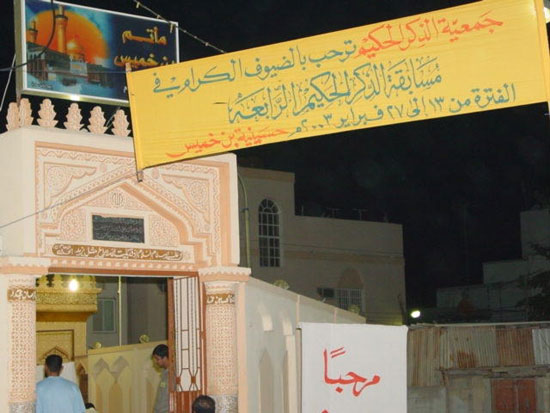 مأتم
بن خميس
جمعية الذكر الحكيم ترحب بالضيوف الكرام في
مسابقة الذكر الحكيم الرابعة
الفترة من ١٣ إلى ٢٧ فبراير ٢٠٠٣م حسينية بن خميس
مرحباً